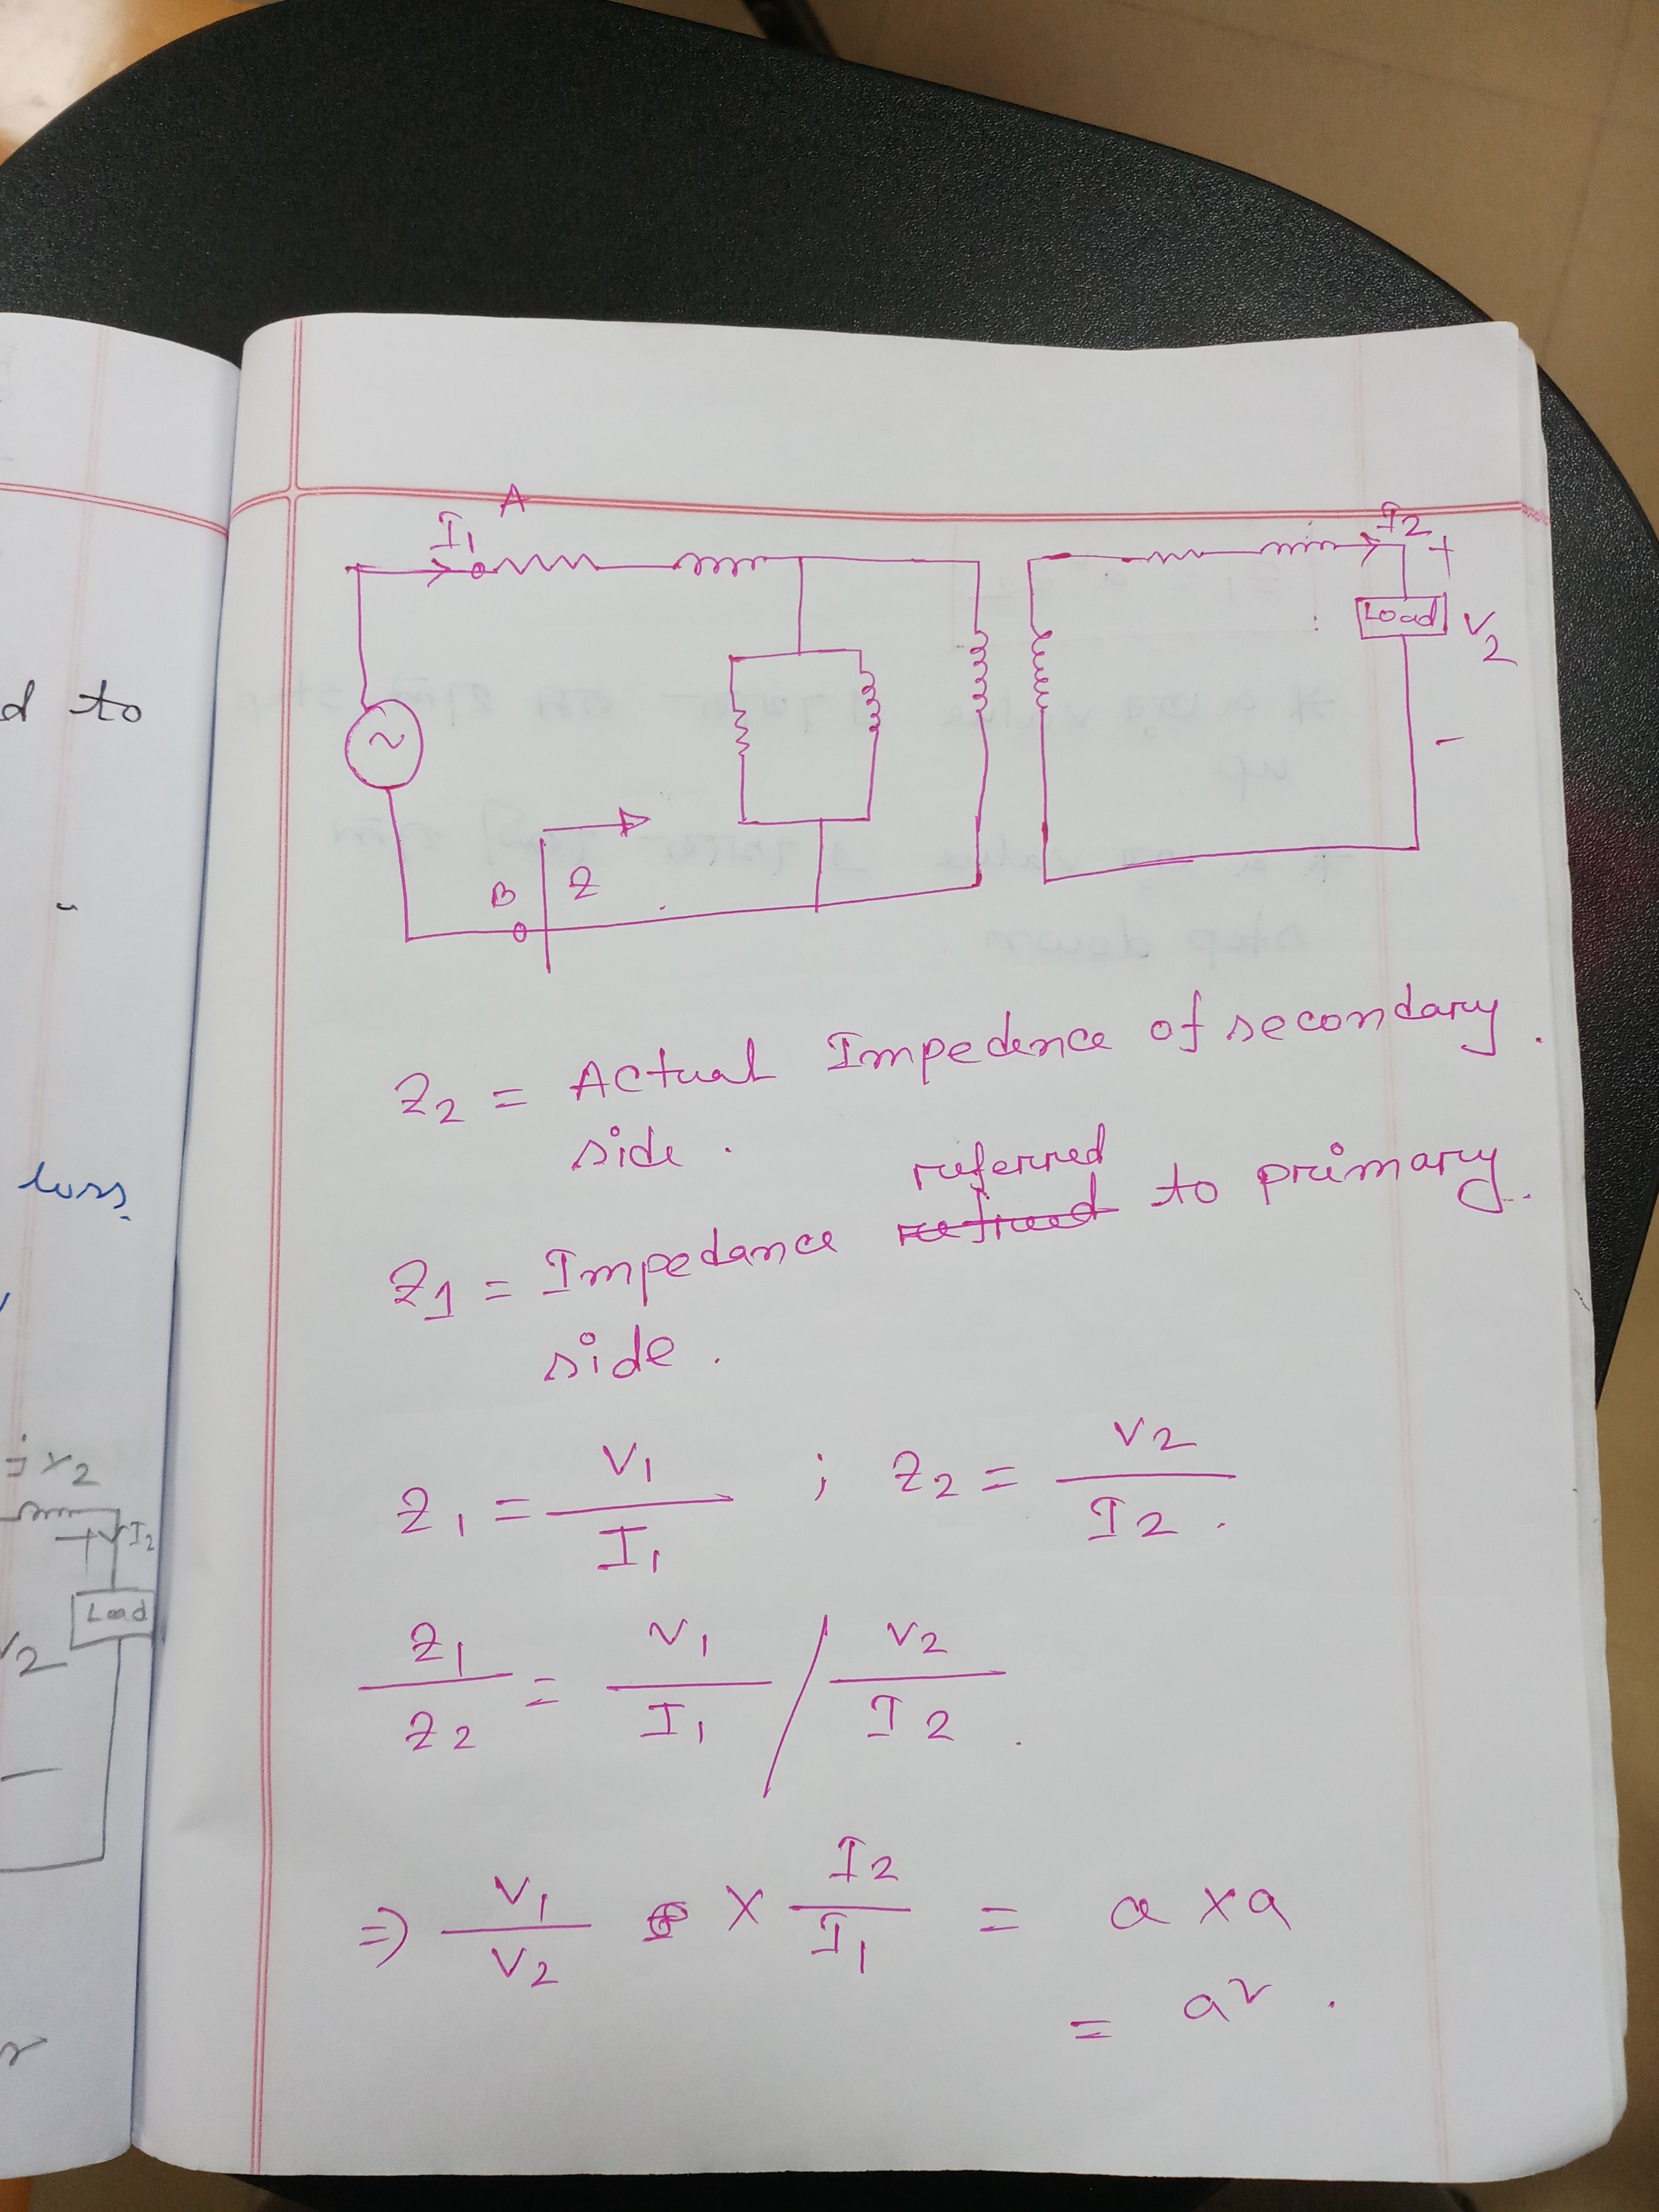 d to
loss.
jx2
I2
Load
V2
A
I1
I2
+
Load
V2
-
B
Z
Z2 = Actual Impedence of secondary
side.
referred
Z1 = Impedance to primary
side.
Z1 = V1 / I1 ; Z2 = V2 / I2.
Z1 / Z2 = V1 / I1 / V2 / I2.
⇒ V1 / V2 × I2 / I1 = a × a
= a².